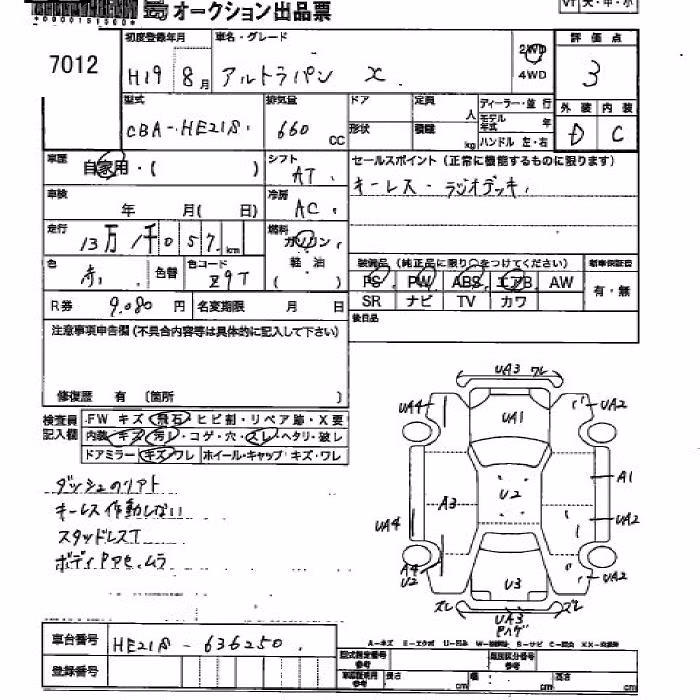 オークション出品票
*0000151000*
7012
初度登録年月 車名・グレード 2WD 評価点
H19 8月 アルトラパン X 4WD 3
型式 排気量 ドア 定員 人 ディーラー・並行 外装 内装
CBA-HE21S 660 CC 形状 積載 kg モデル年式 ハンドル 左・右 D C
車歴 自家用・( ) シフト AT セールスポイント(正常に機能するものに限ります)
車検 年 月( 日) 冷房 AC キーレス・ラジオデッキ
走行 13万1千057km 燃料 ガソリン 軽油
装備品(純正品に限り○をつけてください) 新車保証書
色 赤 色替 色コード Z9T PS PW ABS エアB AW 有・無
R券 9,080円 名変期限 月 日 SR ナビ TV カワ
注意事項申告欄(不具合内容等は具体的に記入して下さい) 後日品
修復歴 有 〔箇所 〕
検査員記入欄 FW キズ・飛石・ヒビ割・リペア跡・X要
内装 キズ・汚レ・コゲ・穴・スレ・ヘタリ・破レ
ドアミラー キズ・ワレ ホイール・キャップ キズ・ワレ
ダッシュのリアト
キーレス作動しない
スタッドレスT
ボディPアセ、ムラ
UA3 ワレ
UA4 UA1 UA2
A1
A3 U2
UA4 UA2
A4 U2 U3 UA2
ズレ UA3 ズレ
Pハゲ
車台番号 HE21S-636250
登録番号
型式指定番号 参考 類別区分番号 参考
長さ cm 幅 cm 高さ cm